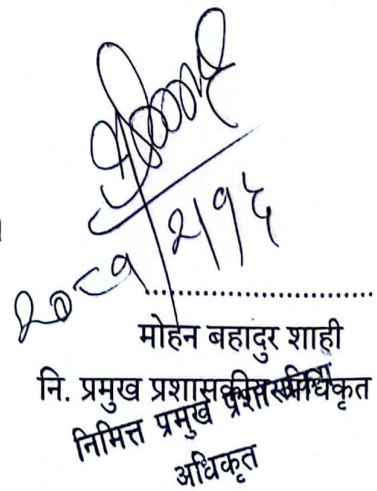 २०८१/२/१६
मोहन बहादुर शाही
नि. प्रमुख प्रशासकीय अधिकृत
निमित्त प्रमुख प्रशासकीय
अधिकृत